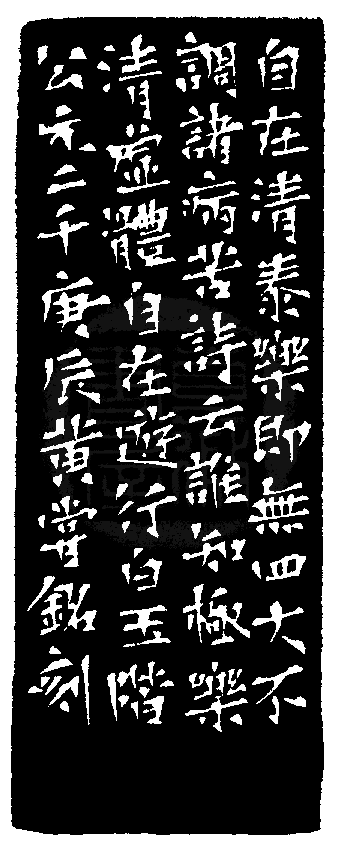 自在清泰樂即無四大不
調諸病苦詩云誰知極樂
清虛體自在遊行白玉階
公元二千庚辰黃嘗銘刻